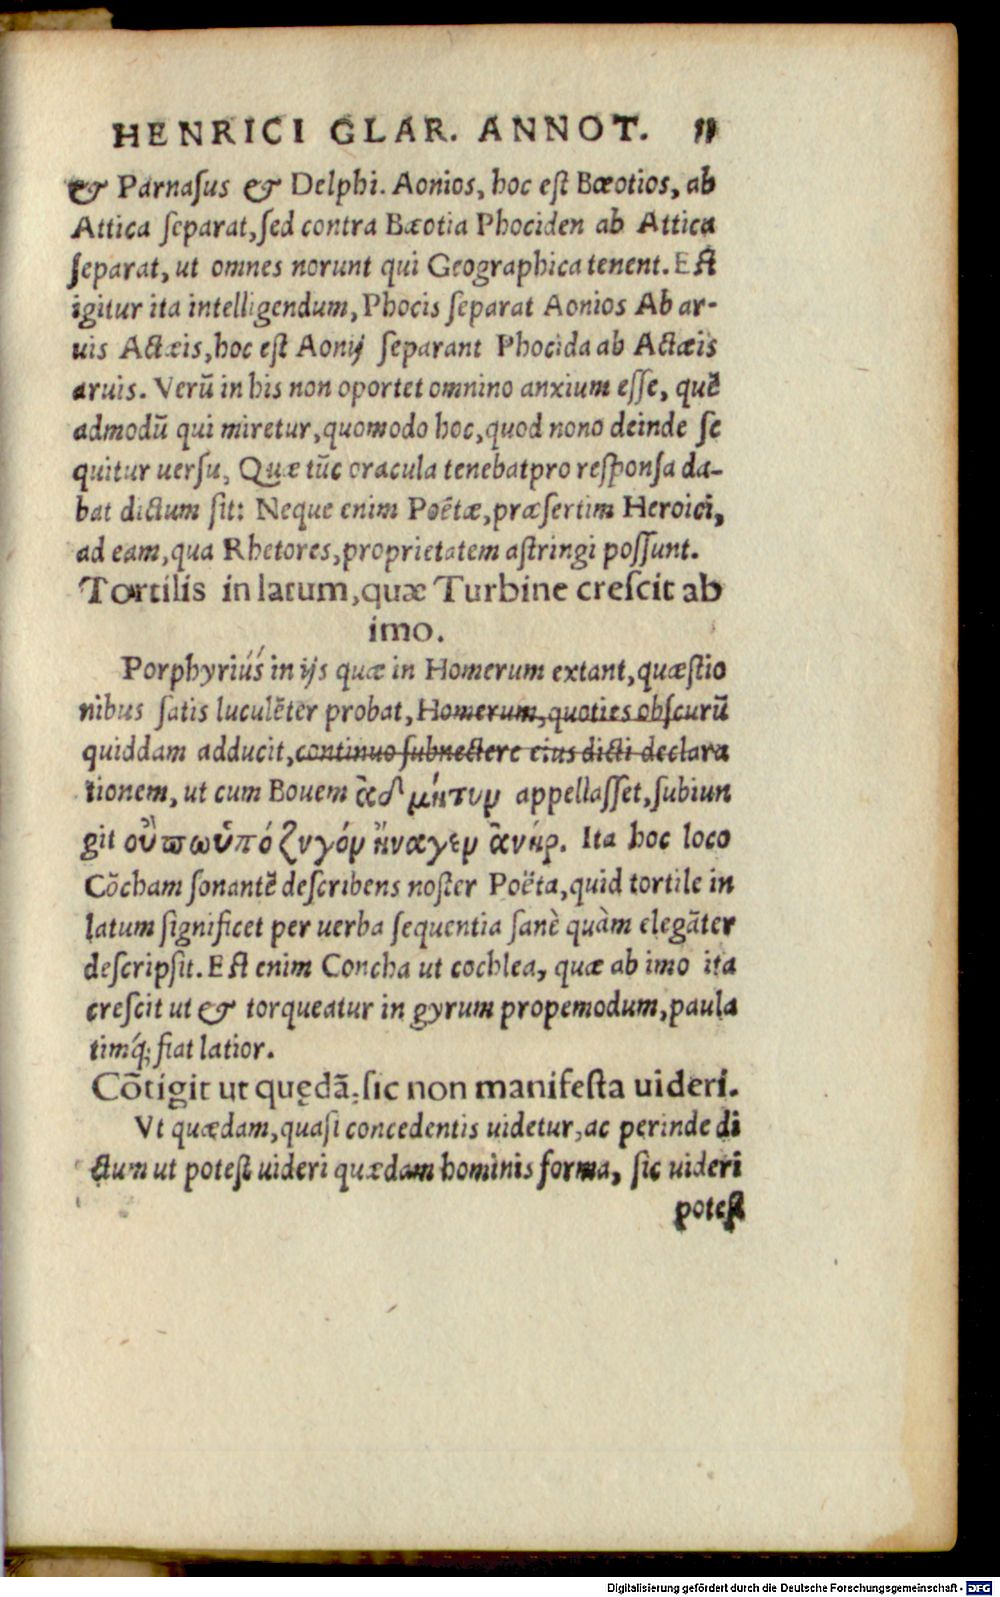 HENRICI GLAR. ANNOT. 11
& Parnaſus & Delphi. Aonios, hoc eſt Bœotios, ab
Attica ſeparat, ſed contra Bæotia Phociden ab Attica
ſeparat, ut omnes norunt qui Geographica tenent. Eſt
igitur ita intelligendum, Phocis ſeparat Aonios Ab ar-
uis Actæis, hoc eſt Aonij ſeparant Phocida ab Actæis
aruis. Verū in his non oportet omnino anxium eſſe, quẽ
admodū qui miretur, quomodo hoc, quod nono deinde ſe
quitur uerſu, Quæ tũc oracula tenebat pro reſponſa da-
bat dictum ſit: Neque enim Poëtæ, præſertim Heroici,
ad eam, qua Rhetores, proprietatem aſtringi poſſunt.
Tortilis in latum, quæ Turbine creſcit ab
imo.
Porphyrius in ijs quæ in Homerum extant, quæſtio
nibus ſatis luculẽter probat, Homerum, quoties obſcurū
quiddam adducit, continuo ſubnectere eius dicti declara
tionem, ut cum Bouem ἀδμήτην appellaſſet, ſubiun
git οὔπω ὑπὸ ζυγόν ἤναγεν ἀνήρ. Ita hoc loco
Cōcham ſonantẽ deſcribens noſter Poëta, quid tortile in
latum ſignificet per uerba ſequentia ſanè quàm elegãter
deſcripſit. Eſt enim Concha ut cochlea, quæ ab imo ita
creſcit ut & torqueatur in gyrum propemodum, paula
timq́; fiat latior.
Cōtigit ut quędā, ſic non manifeſta uideri.
Vt quædam, quaſi concedentis uidetur, ac perinde di
ctum ut poteſt uideri quædam hominis forma, ſic uideri
poteſt
Digitalisierung gefördert durch die Deutsche Forschungsgemeinschaft - DFG